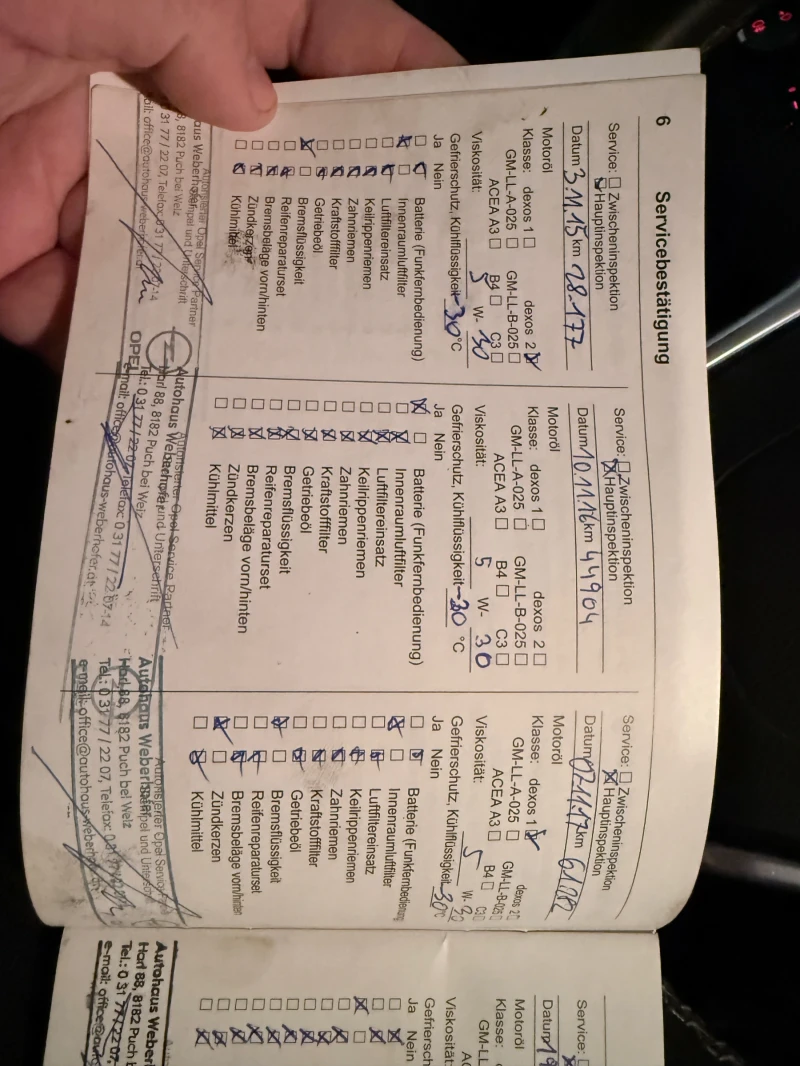 6
Servicebestätigung
Service: Zwischeninspektion
Hauptinspektion
Datum 3.11.15 km 28.177
Motoröl
Klasse: dexos 1 dexos 2
GM-LL-A-025 GM-LL-B-025
ACEA A3 B4 C3
Viskosität: 5 W- 30
Gefrierschutz, Kühlflüssigkeit -30 °C
Ja Nein
Batterie (Funkfernbedienung)
Innenraumluftfilter
Luftfiltereinsatz
Keilrippenriemen
Zahnriemen
Kraftstofffilter
Getriebeöl
Bremsflüssigkeit
Reifenreparaturset
Bremsbeläge vorn/hinten
Zündkerzen
Kühlmittel
Autorisierter Opel Service Partner
Stempel und Unterschrift
8182 Puch bei Weiz
0 31 77 / 22 07, Telefax:
email: office@autohaus-weberhofer
Service: Zwischeninspektion
Hauptinspektion
Datum 10.11.16 km 44904
Motoröl
Klasse: dexos 1 dexos 2
GM-LL-A-025 GM-LL-B-025
ACEA A3 B4 C3
Viskosität: 5 W- 30
Gefrierschutz, Kühlflüssigkeit -30 °C
Ja Nein
Batterie (Funkfernbedienung)
Innenraumluftfilter
Luftfiltereinsatz
Keilrippenriemen
Zahnriemen
Kraftstofffilter
Getriebeöl
Bremsflüssigkeit
Reifenreparaturset
Bremsbeläge vorn/hinten
Zündkerzen
Kühlmittel
Autorisierter Opel Service Partner
Stempel und Unterschrift
OPEL
Autohaus Weberhofer
Harl 88, 8182 Puch bei Weiz
Tel.: 0 31 77 / 22 07, Telefax: 0 31 77 / 22 07-14
e-mail: office@autohaus-weberhofer.at
Service: Zwischeninspektion
Hauptinspektion
Datum km 61082
Motoröl
Klasse: dexos 1 dexos 2
GM-LL-A-025 GM-LL-B-025
ACEA A3 B4 C3
Viskosität: 5 W- 30
Gefrierschutz, Kühlflüssigkeit -30 °C
Ja Nein
Batterie (Funkfernbedienung
Innenraumluftfilter
Luftfiltereinsatz
Keilrippenriemen
Zahnriemen
Kraftstofffilter
Getriebeöl
Bremsflüssigkeit
Reifenreparaturset
Bremsbeläge vorn/hinten
Zündkerzen
Kühlmittel
Autorisierter Opel Service
Stempel und Unters
Autohaus Weberhofer
Harl 88, 8182 Puch bei Weiz
Tel.: 0 31 77 / 22 07, Telefax:
e-mail: office@autohaus-weberhofer
Service:
Datum 19
Motoröl
Klasse:
GM-LL
AC
Viskosität:
Gefriersch
Ja Nein
Autohaus Weber
Harl 88, 8182 Puch
Tel.: 0 31 77 / 22 07,
e-mail: office@au